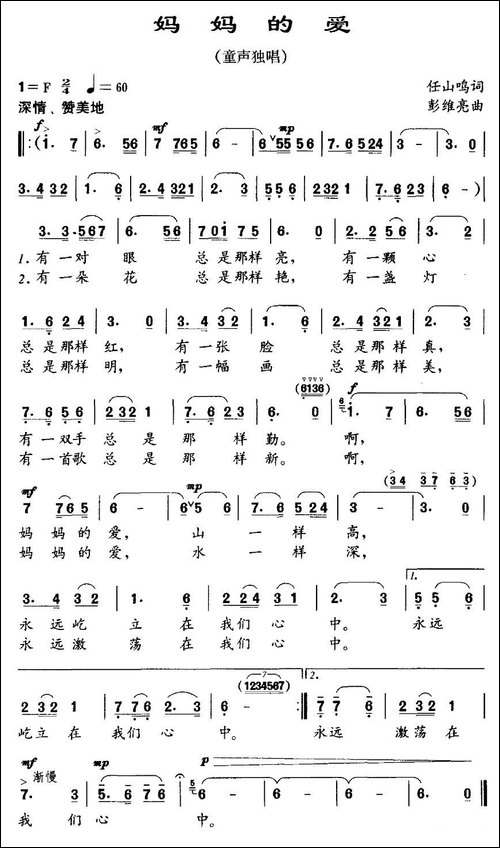 妈妈的爱
(童声独唱)
1=F 2/4 ♩=60 任山鸣词
深情、赞美地 彭维亮曲
f mf mp
‖:(i. 7 | 6. 56 | 7 765 | 6 - | 6 55 56 | 7.6 524 | 3 - | 3. 0 |
3.432 | 1. 6 | 2.4 321 | 2. 3 | 556 | 2321 | 7.6 23 | 6 -) |
3.3.567 | 6. 56 | 701 75 | 6. 0 | 2.2 56 | 3. 2 |
1.有一对 眼 总是那样亮, 有一颗 心
2.有一朵 花 总是那样艳, 有一盏 灯
1.6 24 | 3. 0 | 3.432 | 1. 6 | 2.4 321 | 2. 3 |
总是那样红, 有一张 脸 总是那样真,
总是那样明, 有一幅 画 总是那样美,
(6136) f
7.6 56 | 232 1 | 7.6 23 | 6. 0 | i. 7 | 6. 56 |
有一双手 总是 那样 勤。 啊,
有一首歌 总是 那样 新。 啊,
mf mp (34 37 63)
7 765 | 6 - | 6 5 6 | 7.6 524 | 3 - | 3. 0 |
妈妈的 爱, 山 一样 高,
妈妈的 爱, 水 一样 深,
1.
3.4 32 | 1. 6 | 2 24 31 | 2. 3 | 55 6 |
永远屹 立 在 我们 心 中。 永远
永远激 荡 在 我们 心 中。
(1234567) 2.
2 32 1 | 776 2.3 | 6. - :‖ 77 6 | 2 32 1 |
屹立 在 我们 心 中。 永远 激荡 在
mf 渐慢 mp p
7. 3 | 5. 6 76 | 6 - | 6 - | 6 - | 6 - ‖
我 们心 中。